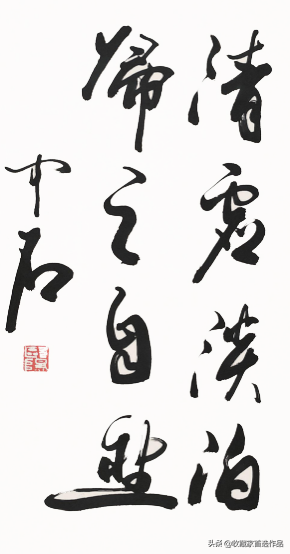 清虚淡泊
歸之自然
中石
头条@收藏家首选作品